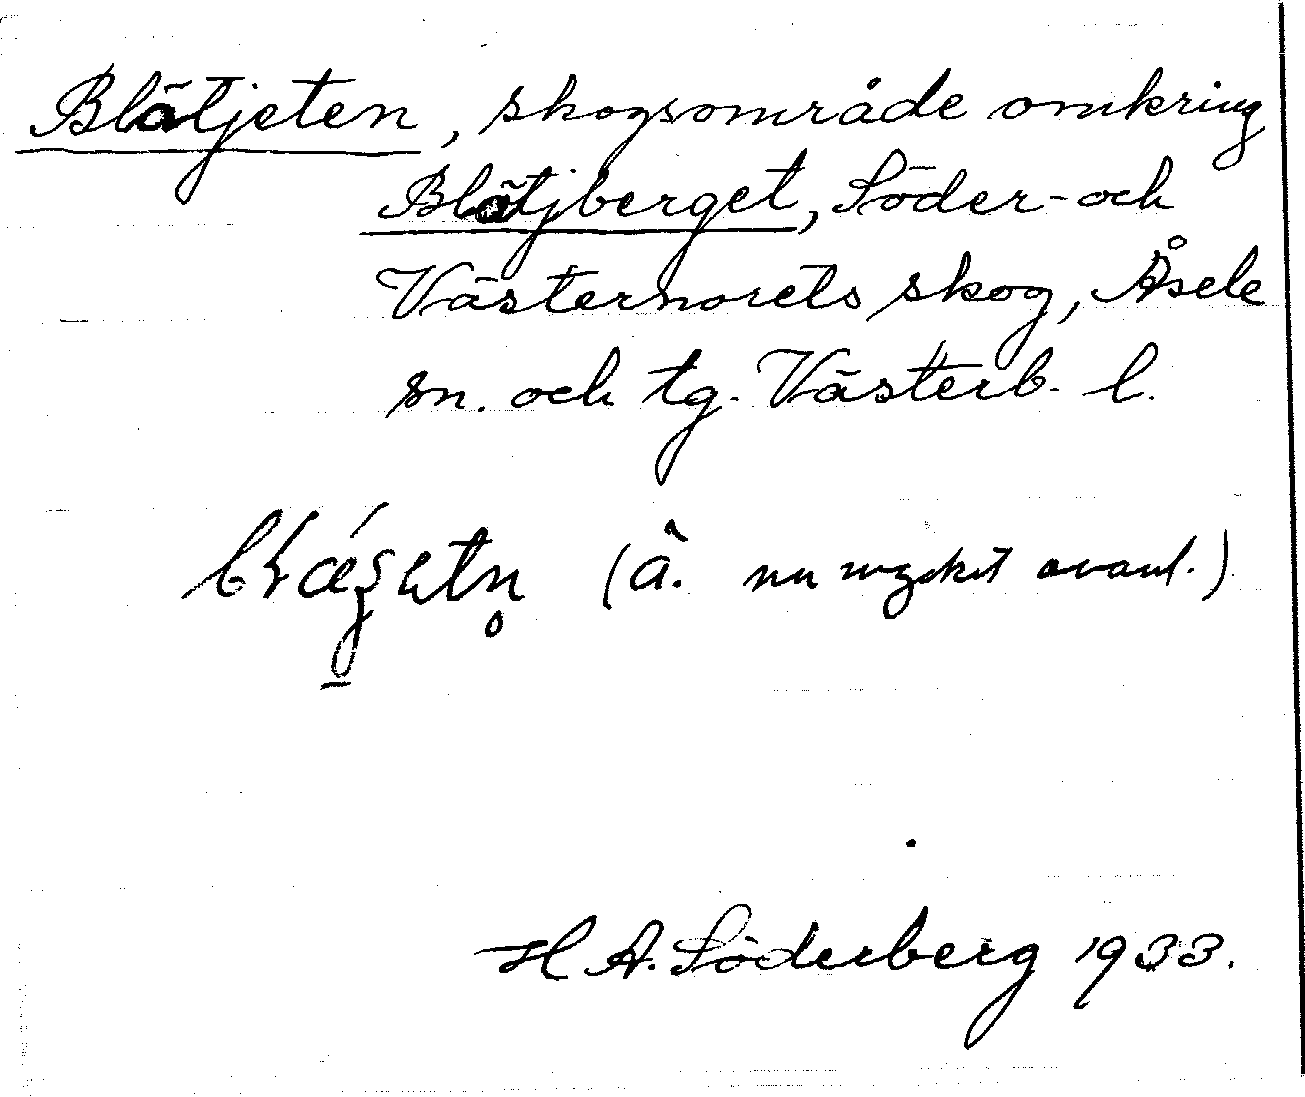 Blätjeten, skogsområde omkring
Blätjberget, Söder- och
Västernorets skog, Åsele
sn. och tg. Västerb. l.
(ä. nu mycket ovanl.)
H A. Söderberg 1933.